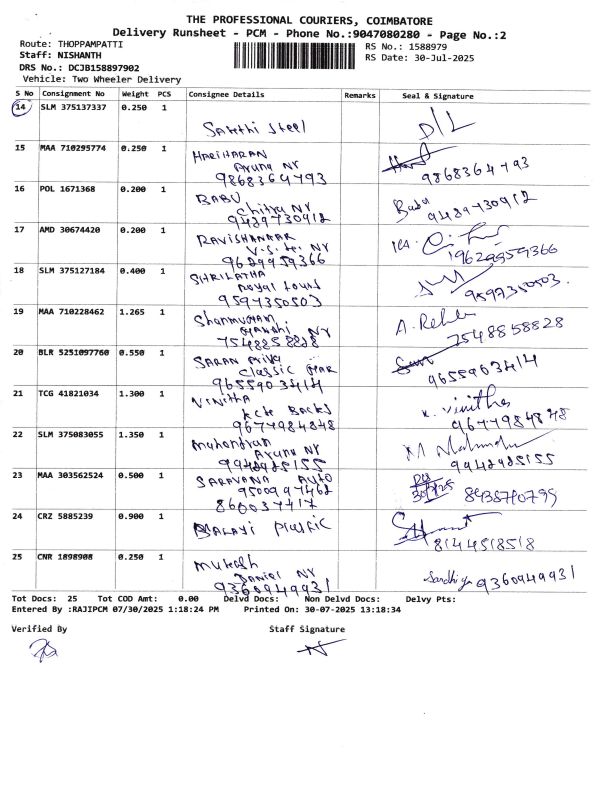 THE PROFESSIONAL COURIERS, COIMBATORE
Delivery Runsheet - PCM - Phone No.:9047080280 - Page No.:2
Route: THOPPAMPATTI
RS No.: 1588979
Staff: NISHANTH
RS Date: 30-Jul-2025
DRS No.: DCJB158897902
Vehicle: Two Wheeler Delivery
S No Consignment No Weight PCS Consignee Details Remarks Seal & Signature
14 SLM 375137337 0.250 1
Sakthi Steel
D/L
15 MAA 710295774 0.250 1
HARIHARAN
Aruna NY
9868364793
9868364793
16 POL 1671368 0.200 1
BABU
Chitra NY
9429730912
Babu
9489730912
17 AMD 30674420 0.200 1
RAVISHANKAR
NY
9629959366
9629959366
18 SLM 375127184 0.400 1
SHRILATHA
Royal
9597350503
9597350503
19 MAA 710228462 1.265 1
Shanmugam
Gandhi NY
7548858828
7548858828
20 BLR 5251097760 0.550 1
SARAN Priya
Classic
9655903414
9655903414
21 TCG 41821034 1.300 1
VINITHA
KCK Backs
9677984848
K. Vinitha
9677984848
22 SLM 375083055 1.350 1
Mahendran
Aruna NY
9942985155
9942985155
23 MAA 303562524 0.500 1
SARAVANA AUTO
9500997462
8600037417
8438710795
24 CRZ 5885239 0.900 1
BALAJI Plastic
8144518518
25 CNR 1898908 0.250 1
Mukesh
Daniel NY
9360949931
Sandhiya 9360949931
Tot Docs: 25 Tot COD Amt: 0.00 Delvd Docs: Non Delvd Docs: Delvy Pts:
Entered By :RAJIPCM 07/30/2025 1:18:24 PM Printed On: 30-07-2025 13:18:34
Verified By Staff Signature